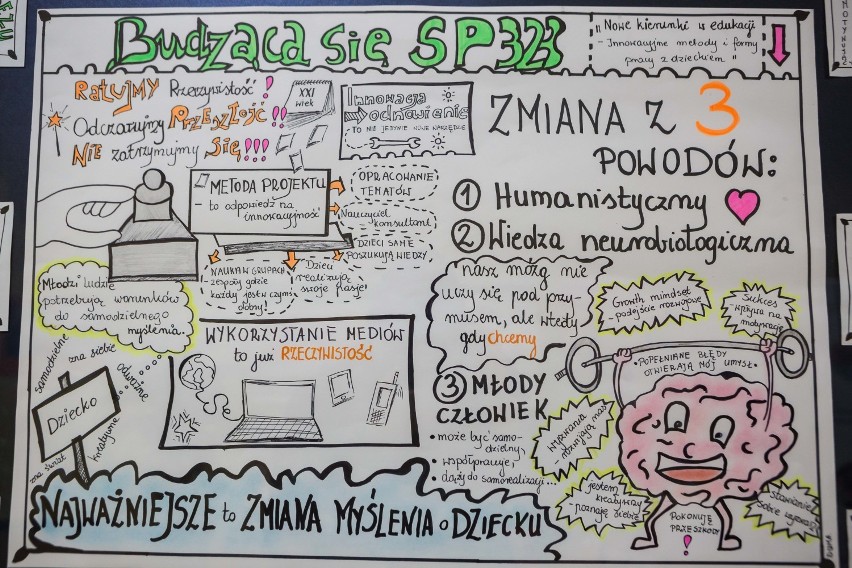 Budząca się SP323
"Nowe kierunki w edukacji
- Innowacyjne metody i formy
pracy z dzieckiem"
RATUJMY Rzeczywistość!
Odczarujmy PRZESZŁOŚĆ!!
NIE zatrzymujmy SIĘ!!!
XXI
wiek
Innowacja
odnawienie
TO NIE JEDYNIE NOWE NARZĘDZIE
ZMIANA Z 3
POWODÓW:
① Humanistyczny
② Wiedza neurobiologiczna
METODA PROJEKTU
- to odpowiedź na
innowacyjność
OPRACOWANIE
TEMATÓW
Nauczyciel
konsultant
DZIECI SAME
POSZUKUJĄ WIEDZY
NAUKA W GRUPACH -
zespoły gdzie
każdy jest w czymś
dobry!
Dzieci
realizują
swoje pasje!
Młodzi ludzie
potrzebują warunków
do samodzielnego
myślenia.
nasz mózg nie
uczy się pod przy-
musem, ale wtedy
gdy chcemy
Growth mindset
- podejście rozwojowe
Sukces
- wpływa na
motywację
• POPEŁNIANE BŁĘDY
OTWIERAJĄ MÓJ UMYSŁ •
WYKORZYSTANIE MEDIÓW
to już RZECZYWISTOŚĆ
samodzielne
zna siebie
odważne
Dziecko
zna świat
kreatywne
③ MŁODY
CZŁOWIEK
• może być samo-
dzielny,
• współpracuje,
• dąży do samorealizacji...
Wyzwania
- rozwijają nas
jestem
kreatywny
- poznaję siebie
stawianie
sobie wyzwań
POKONUJĘ
PRZESZKODY
!
NAJWAŻNIEJSZE to ZMIANA MYŚLENIA o DZIECKU